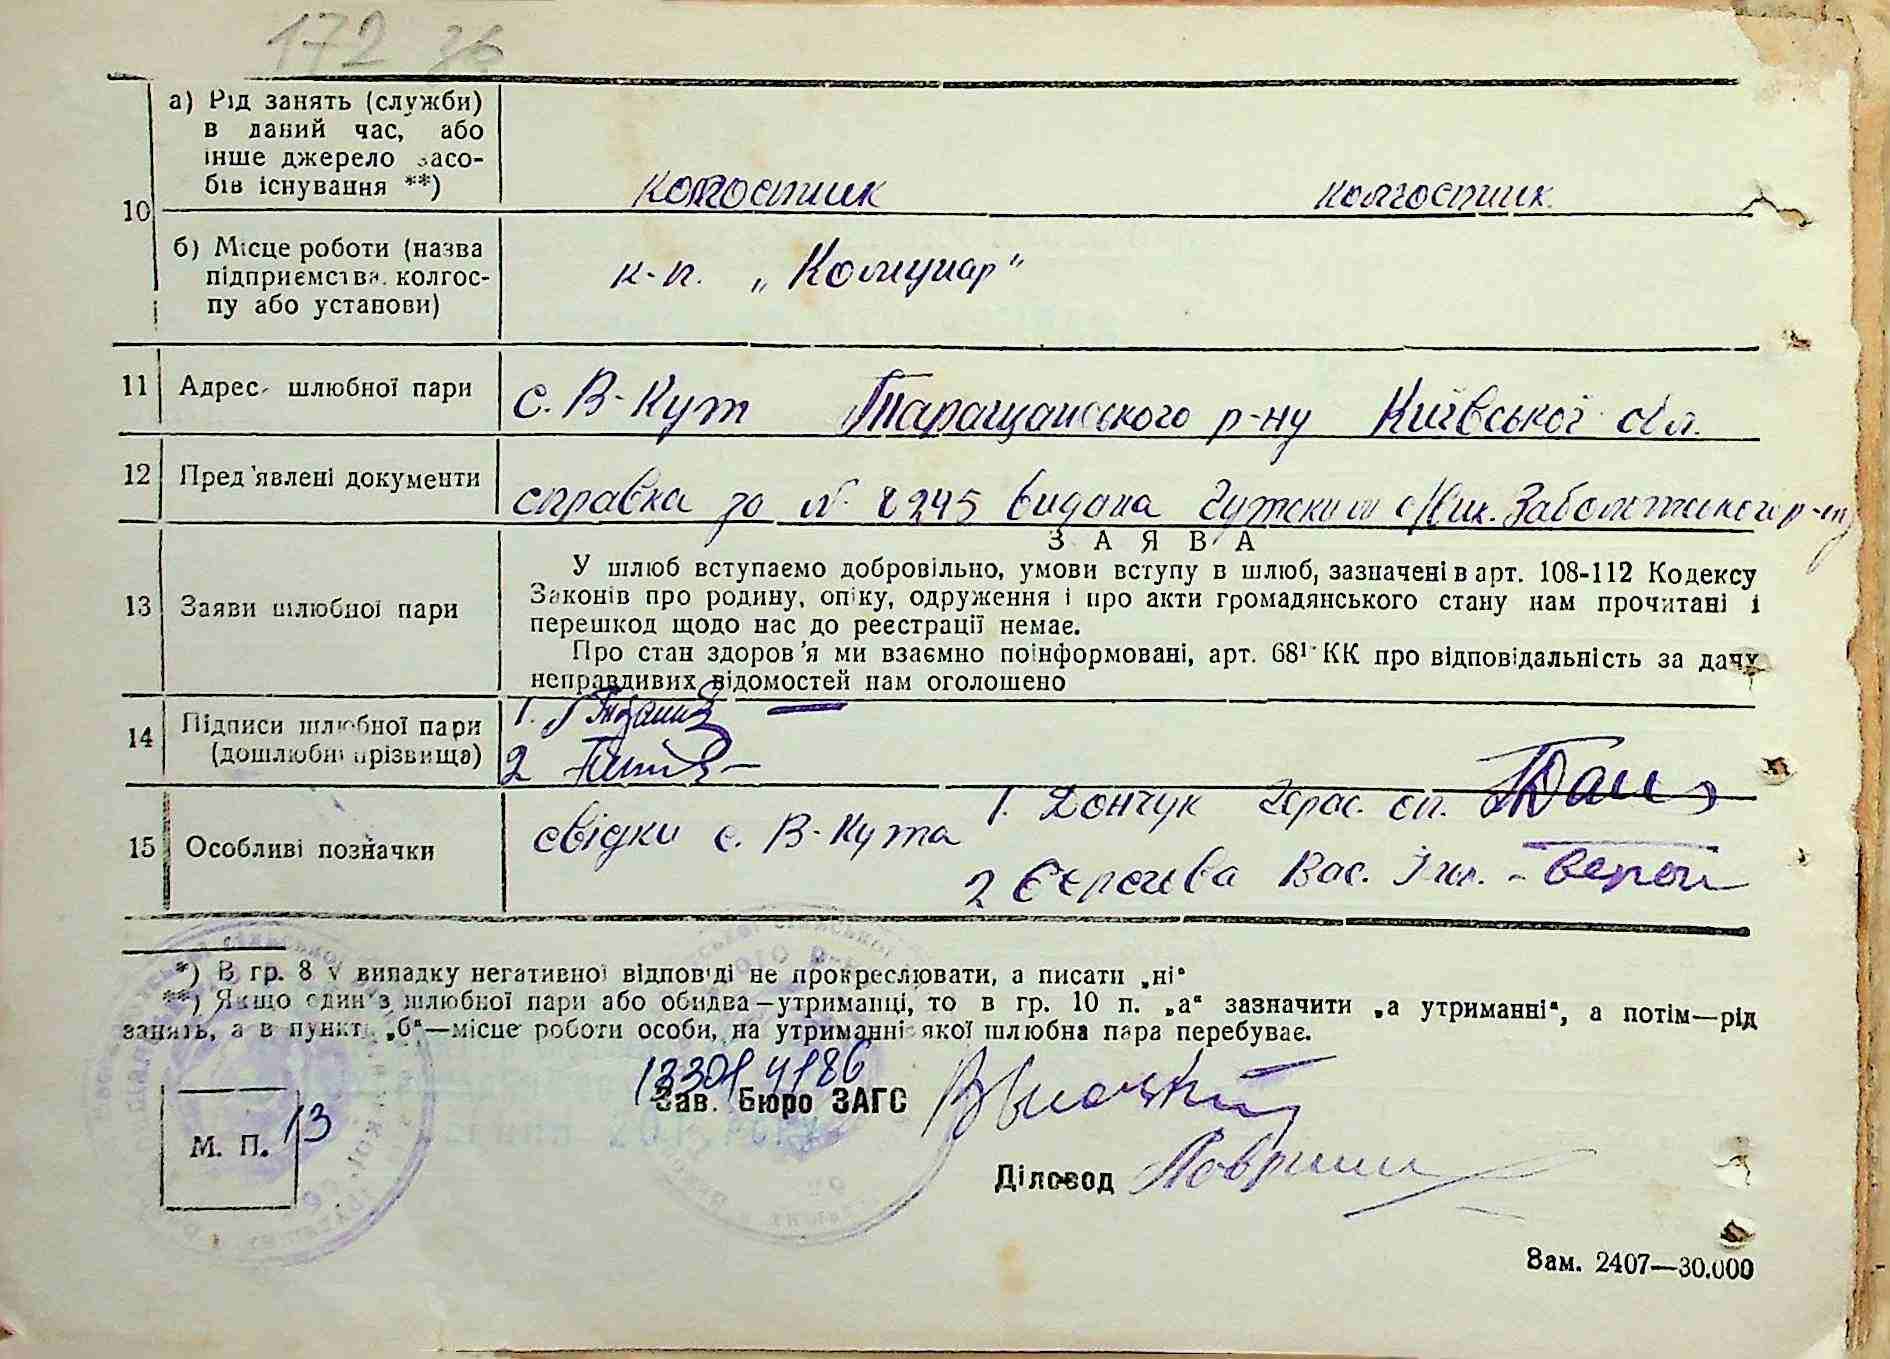 172 зв
10
а) Рід занять (служби)
в даний час, або
інше джерело засо-
бів існування **)
колгоспник колгоспник
б) Місце роботи (назва
підприємства, колгос-
пу або установи)
к-п. „Комунар"
11 Адреса шлюбної пари с. В-Кут Таращанського р-ну Київської обл.
12 Пред'явлені документи справка за № 8245 видана Заболотського р-ну
ЗАЯВА
13 Заяви шлюбної пари
У шлюб вступаємо добровільно, умови вступу в шлюб, зазначені в арт. 108-112 Кодексу
Законів про родину, опіку, одруження і про акти громадянського стану нам прочитані і
перешкод щодо нас до реєстрації немає.
Про стан здоров'я ми взаємно поінформовані, арт. 68¹ КК про відповідальність за дачу
неправдивих відомостей нам оголошено
14 Підписи шлюбної пари
(дошлюбні прізвища)
1.
2
15 Особливі позначки
свідки с. В-Кута 1. Дончук Герас. сп.
2 Вас.
*) В гр. 8 у випадку негативної відповіді не прокреслювати, а писати „ні"
**) Якщо один з шлюбної пари або обидва—утриманці, то в гр. 10 п. „а" зазначити „а утриманні", а потім—рід
занять, а в пункті „б"—місце роботи особи, на утриманні якої шлюбна пара перебуває.
Зав. Бюро ЗАГС
М. П. 13
Діловод
Зам. 2407—30.000